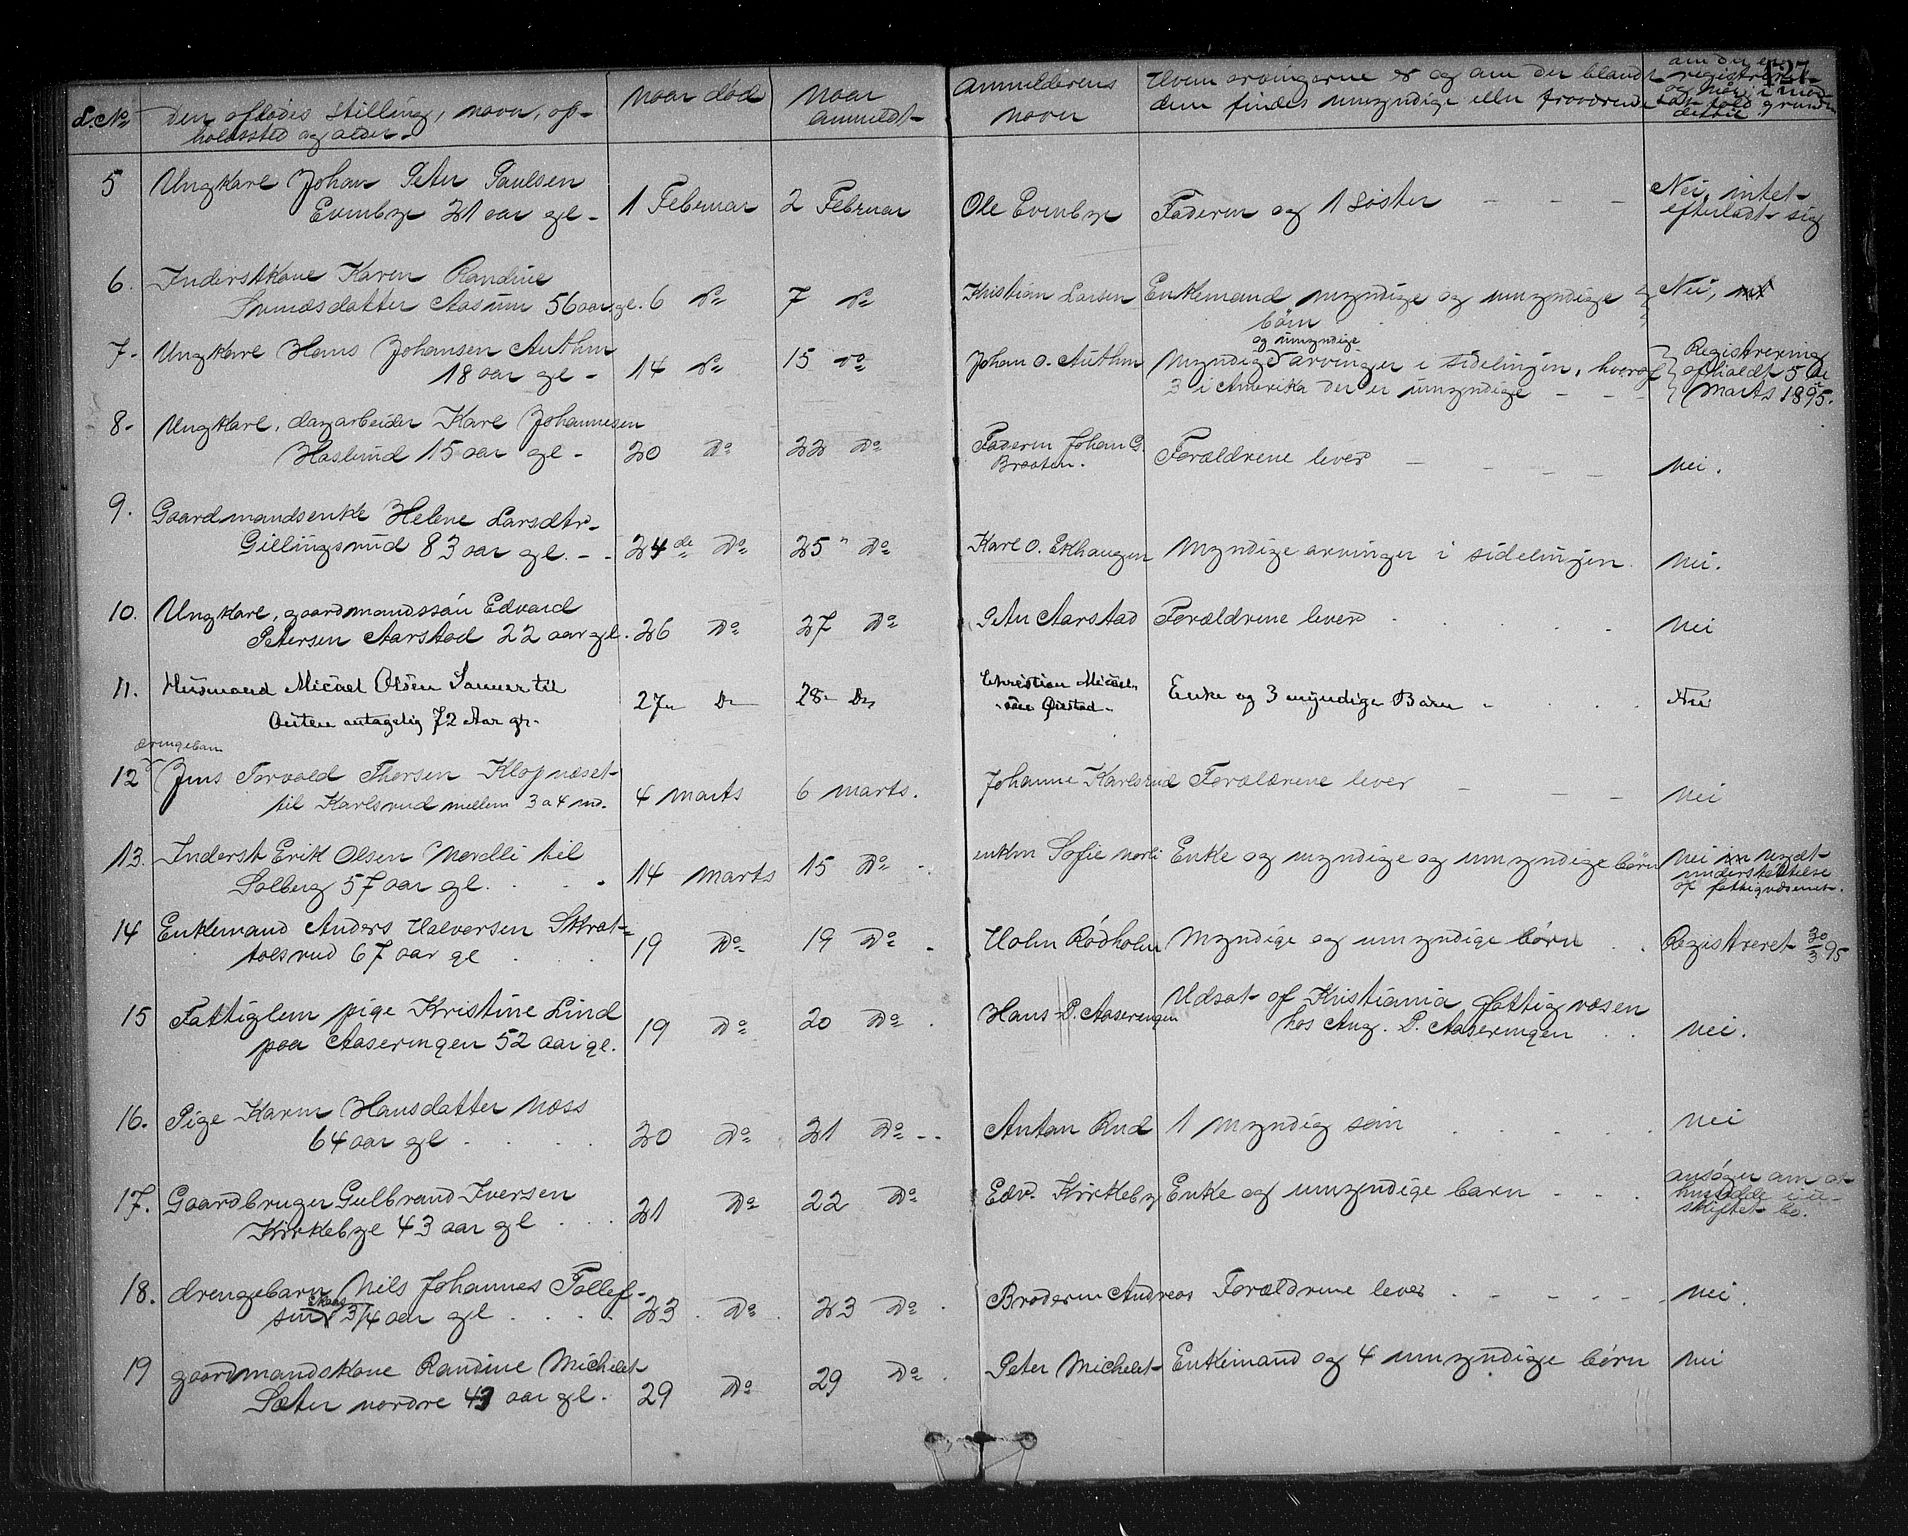 127
L. No
Den afdødes stilling, navn, op-
holdssted og alder.
Naar død
Naar
anmeldt
Anmelderens
navn
Hvem arvingerne er og om der blandt
dem findes umyndige eller fraværende
om der er
registreret
og hvis i mod-
sat fald grunden
dertil
5 Ungkarl Johan Peter Paulsen
Evenbye 21 aar gl - 1 Februar 2 Februar Ole Evenbye Faderen og 1 Søster - - - Nei, intet
efterladt sig
6. Inderstkone Karen Randine
Aasum 56 aar gl. 6 Do 7 Do Kristian Larsen Enkemand myndige og umyndige Nei,
børn
7. Ungkarl Hans Johansen Authen
18 aar gl - 14 Do 15 Do Johan O. Authen Myndige arvinger i sidelinjen, hvoraf
og umyndige
3 i Amerika der er umyndige - - Registrering
afholdt 5 de
Marts 1895.
8. Ungkarl, dagarbeider Karl Johannesen
Haslund 15 aar gl - 20 Do 22 Do Faderen Johan G.
Braaten. Forældrene lever - - - - Nei.
9. Gaardmandsenke Helene Larsdtr.
Gillingsrud 83 aar gl. - - 24 de Do 25 " Do Karl O. Ekhaugen Myndige arvinger i sidelinjen. Nei.
10. Ungkarl, gaardmandssøn Edvard
Petersen Aarstad 22 aar gl. 26 Do 27 Do Peter Aarstad Forældrene lever . . . . Nei
11. Husmand Micael Olsen Sanner til
antagelig 72 Aar gl. 27 Do 28 Do Christian Micael-
sen Enke og 3 myndige Børn - . . . Nei
drengebarn
12 Jens Torvald Thorsen Klopnæset
til Karlsrud mellem 3 a 4 md. 4 Marts 6 Marts. Johanne Karlsrud Forældrene lever - - - Nei
13. Inderst Erik Olsen Nordli til
Solberg 57 aar gl. . . . 14 Marts 15 Do - . enken Sofie Norli Enke og myndige og umyndige børn Nei nydt
understøttelse
af fattigvæsenet.
14 Enkemand Anders Halvorsen Skrat-
tolsrud 67 aar gl . . . 19 Do 19 Do . Holm Rødholm Myndige og umyndige børn . . Registreret 30/3 95
15 Fattiglem pige Kristine Lind
paa Aaseringen 52 aar gl. 19 Do 20 Do . Hans P. Aaseringen Udsat af Kristiania fattigvæsen
hos Aug. P. Aaseringen . . Nei.
16. Pige Karen Hansdatter Næss
64 aar gl . . . . 20 Do 21 Do - . Anton Rud 1 myndig søn . . . . . Nei
17. Gaardbruger Gulbrand Iversen
Kirkebye 43 aar gl . . . 21 Do 22 Do Edv. Kirkeby Enke og umyndige barn - . . ansøger om at
hensidde i u-
skiftet bo.
18. drengebarn Nils Johannes Tollef-
sen 3/4 aar gl . . . . 23 . Do . 23 Do . Broderen Andreas Forældrene lever . - - - - - Nei.
19 gaardmandskone Randine Michelet
Sæter nordre 43 aar gl. 29 Do 29 Do . Peter Michelet Enkemand og 4 umyndige børn Nei